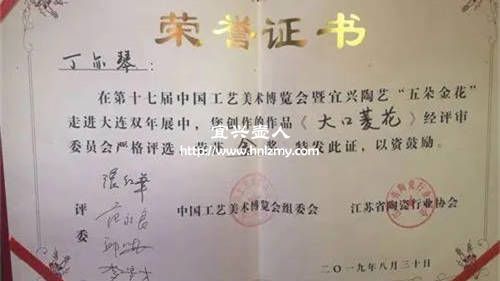 荣誉证书
丁亦琴：
在第十七届中国工艺美术博览会暨宜兴陶艺“五朵金花”
走进大连双年展中，您创作的作品《大口菱花》经评审
委员会严格评选，荣获金奖，特发此证，以资鼓励。
宜兴壶人
www.hnlzmy.com
评
委
中国工艺美术博览会组委会
江苏省陶瓷行业协会
二〇一九年八月三十日